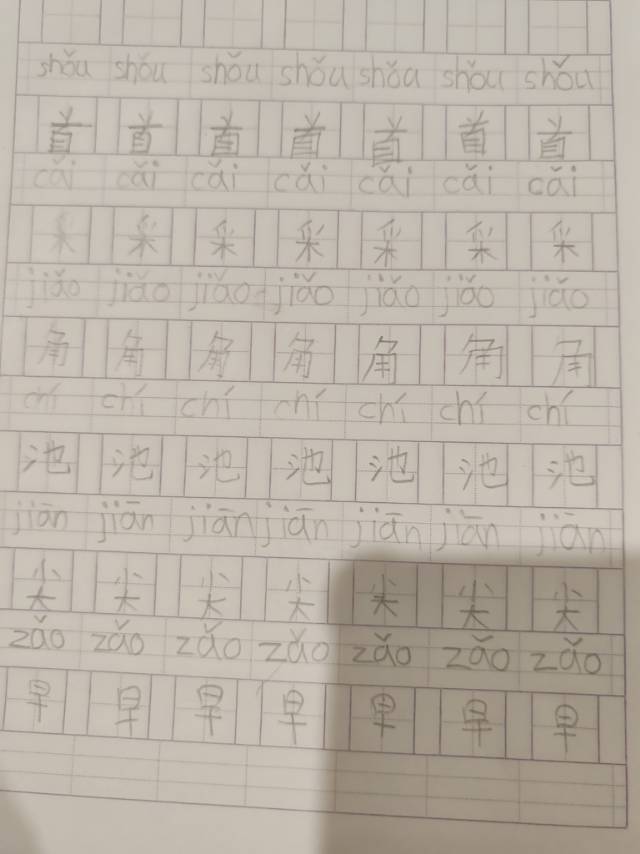 shǒu shǒu shǒu shǒu shǒu shǒu shǒu
首 首 首 首 首 首 首
cǎi cǎi cǎi cǎi cǎi cǎi cǎi
采 采 采 采 采 采 采
jiǎo jiǎo jiǎo jiǎo jiǎo jiǎo jiǎo
角 角 角 角 角 角 角
chí chí chí chí chí chí chí
池 池 池 池 池 池 池
jiān jiān jiān jiān jiān jiān jiān
尖 尖 尖 尖 尖 尖 尖
zǎo zǎo zǎo zǎo zǎo zǎo zǎo
早 早 早 早 早 早 早